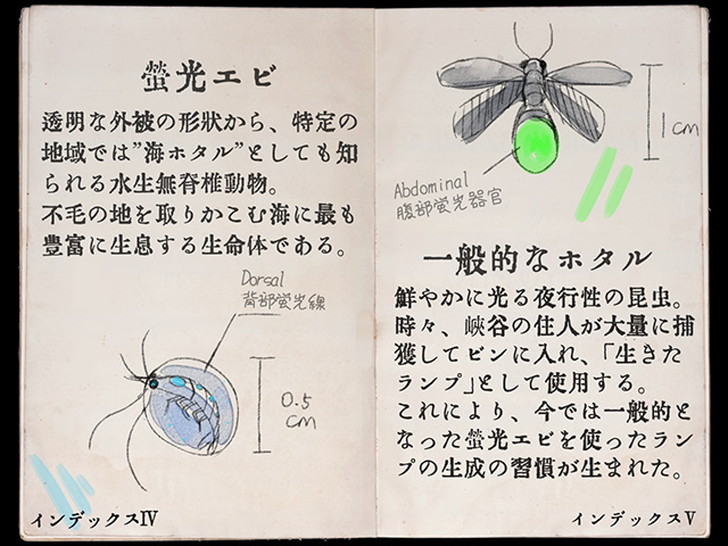 螢光エビ
透明な外被の形狀から、特定の
地域では”海ホタル”としても知
られる水生無脊椎動物。
不毛の地を取りかこむ海に最も
豊富に生息する生命体である。
Dorsal
背部螢光線
0.5
cm
インデックスIV
1cm
Abdominal
腹部螢光器官
一般的なホタル
鮮やかに光る夜行性の昆虫。
時々、峽谷の住人が大量に捕
獲してビンに入れ、「生きた
ランプ」として使用する。
これにより、今では一般的と
なった螢光エビを使ったラン
プの生成の習慣が生まれた。
インデックスV